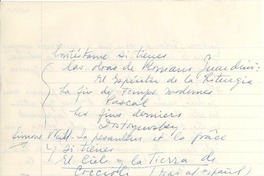 Contéstame si tienes
las obras de Romano Guardini:
El Espíritu de la Liturgia
La fin de Temps modernes
Pascal
Les fins derniers
Dostoyewsky
Simone Weil. La pesanteur et la grâce
y si tienes
El Cielo y la Tierra de
Coccioli (trad al español)